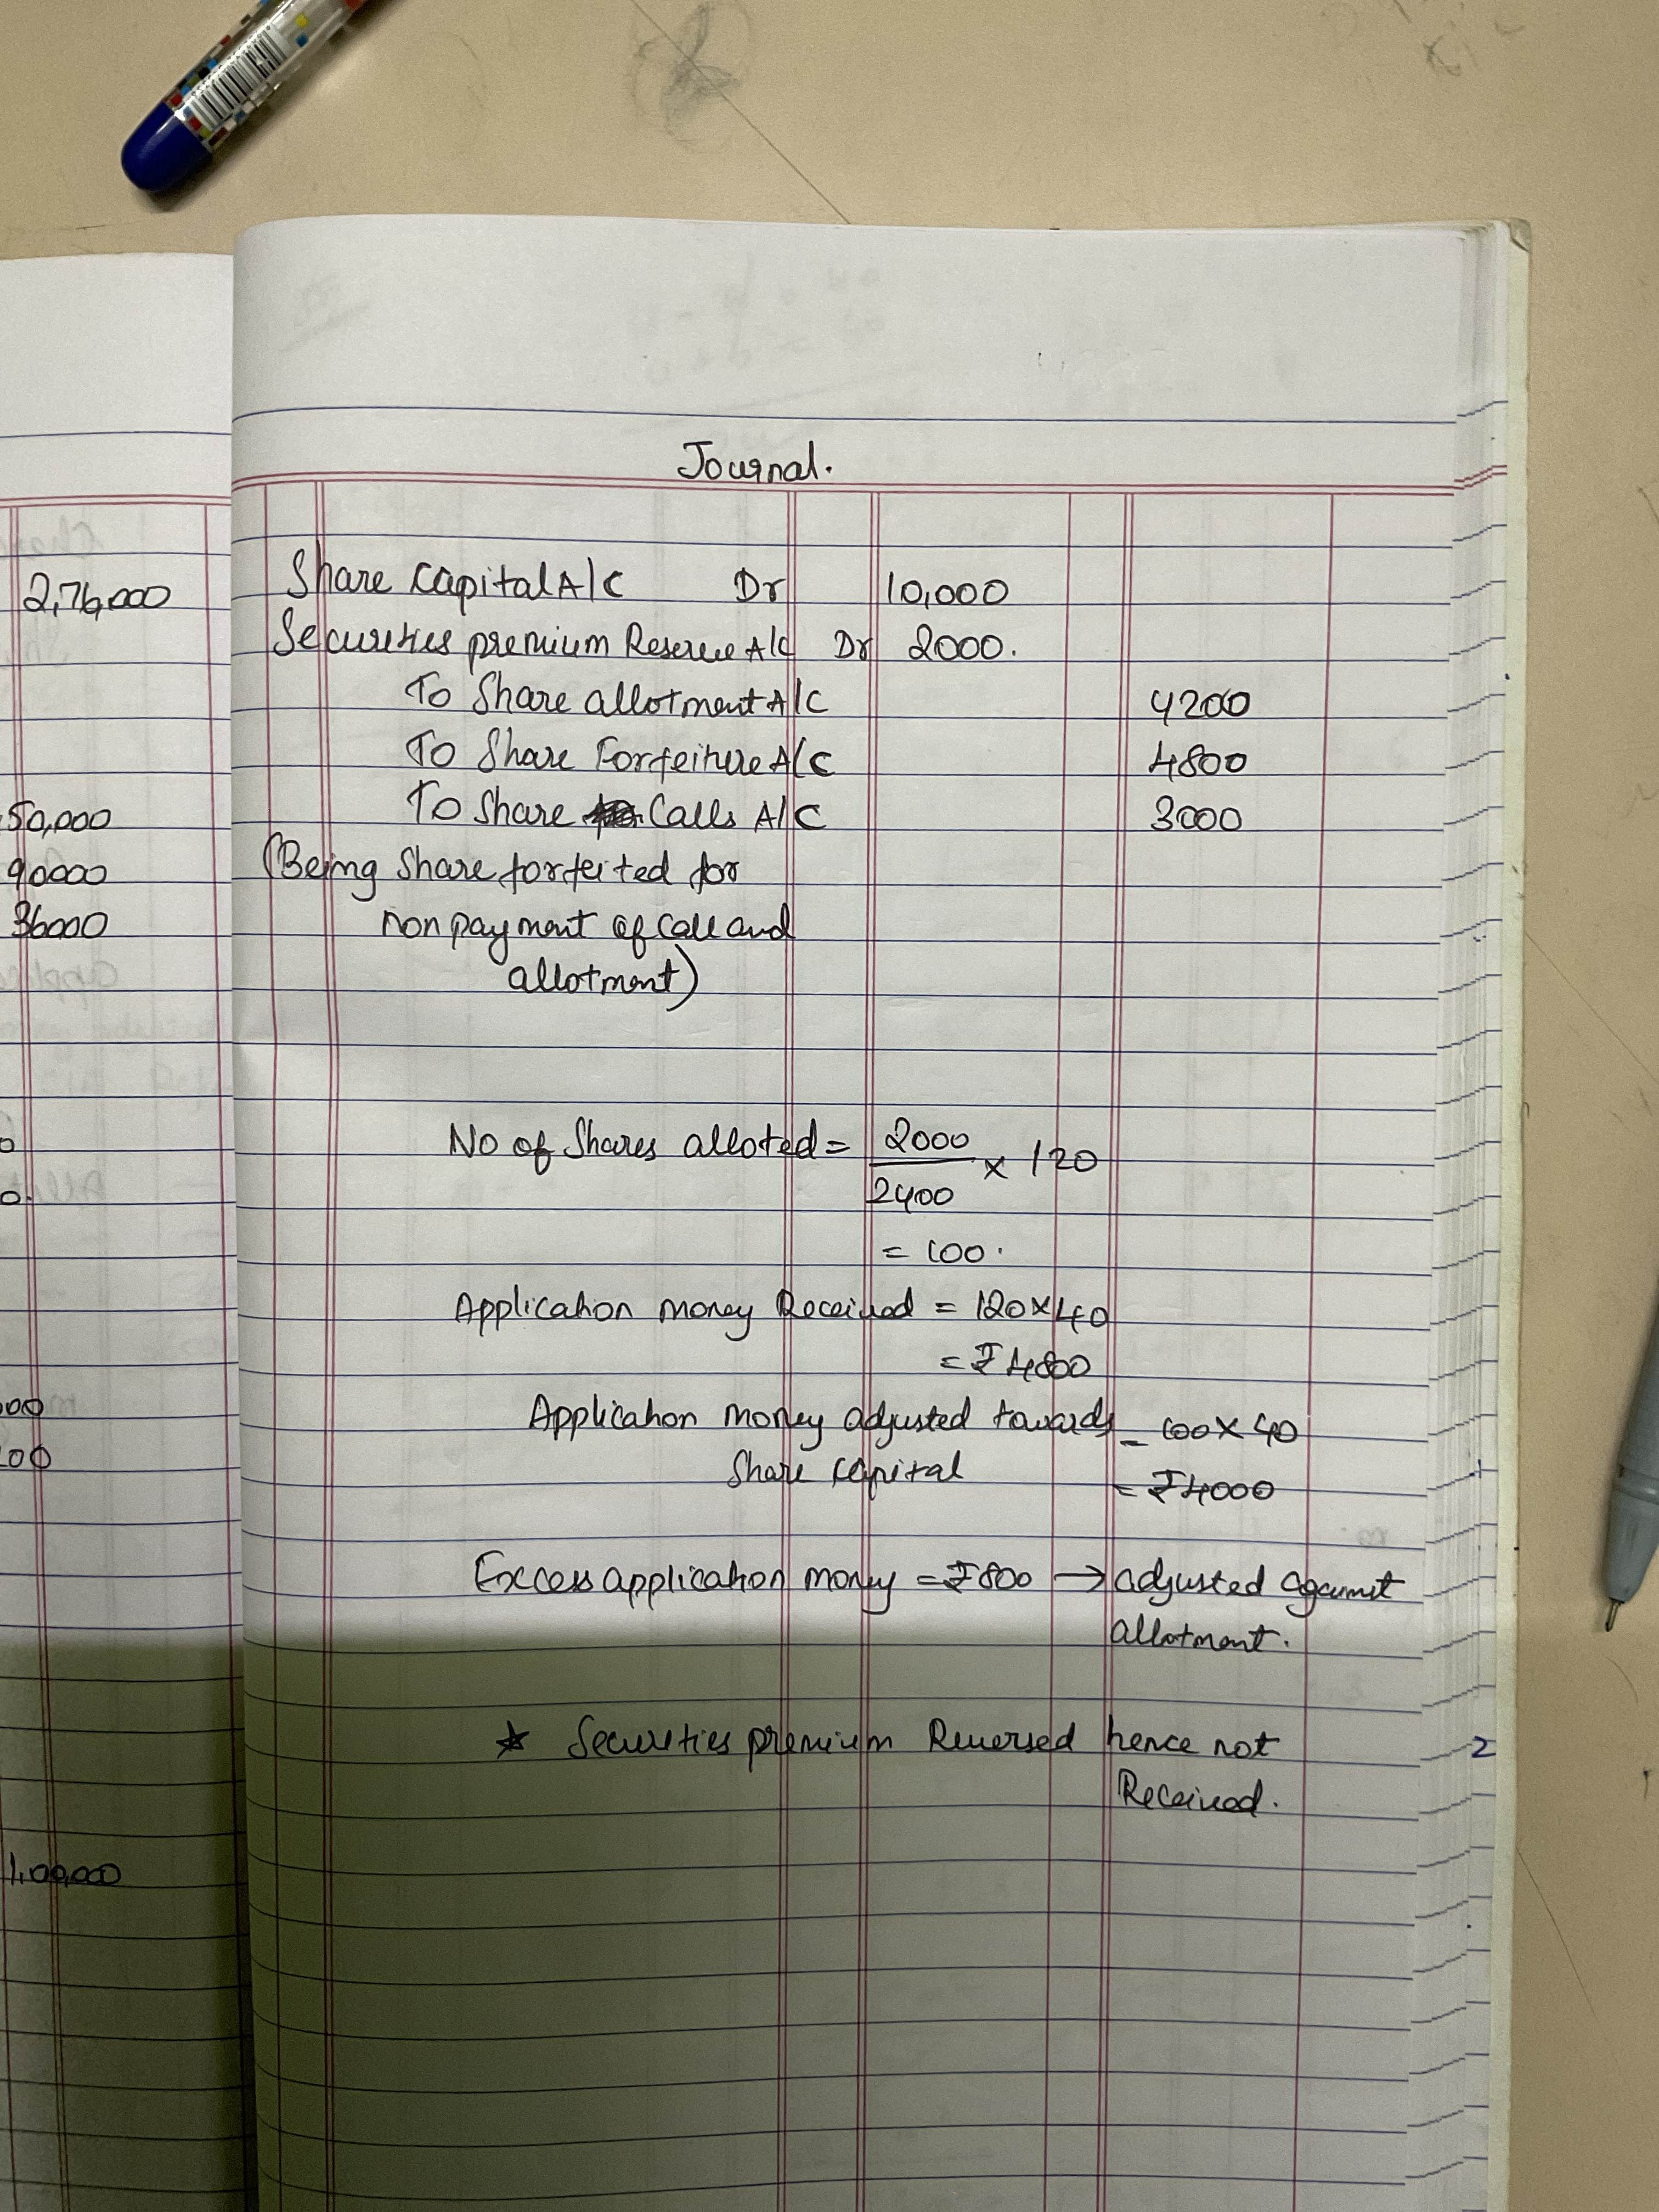 2,76,000
50,000
90000
36000
00
00
1,00,000
Journal.
Share Capital A/C Dr 10,000
Securities premium Reserve A/C Dr 2000.
To Share allotment A/C 4200
To Share Forfeiture A/C 4800
To Share Calls A/C 3000
(Being Share forfeited for
non payment of call and
allotment)
No of Shares alloted = 2000/2400 × 120
= 100.
Application money Received = 120×40
= ₹4800
Application money adjusted towards = 100×40
Share capital
= ₹4000
Excess application money = ₹800 → adjusted against
allotment.
★ Securities premium Reversed hence not
Received.
2